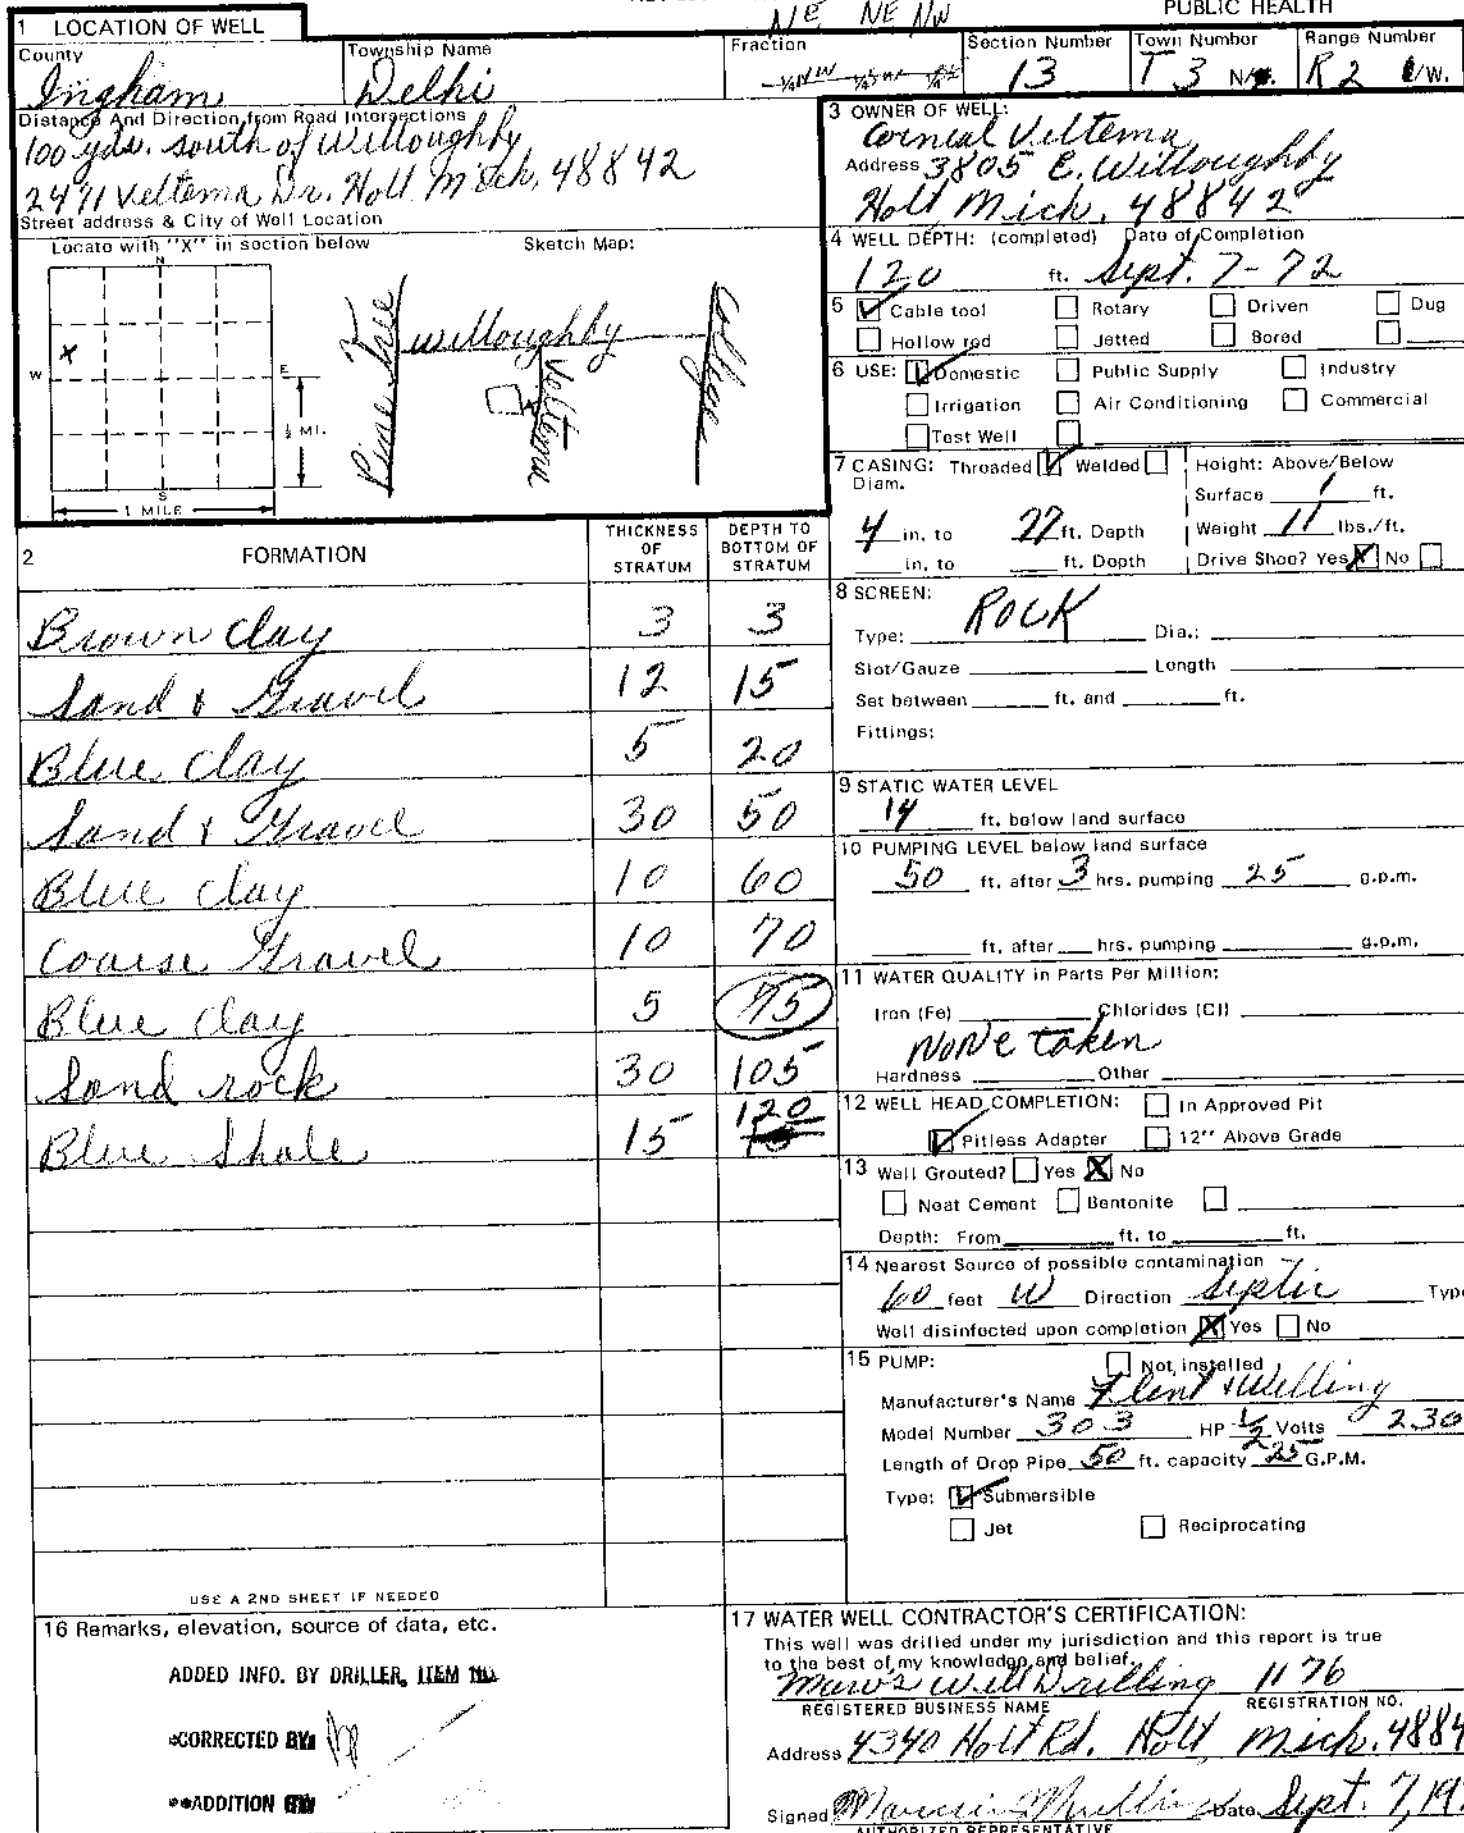 NE NE NW
PUBLIC HEALTH
1 LOCATION OF WELL
County Township Name Fraction Section Number Town Number Range Number
Ingham Delhi 13 T 3 N/S. R 2 E/W.
Distance And Direction from Road Intersections
100 yds. south of Willoughby
2471 Veltema Dr. Holt Mich, 48842
Street address & City of Well Location
Locate with "X" in section below Sketch Map:
N
X
W E
½ MI.
S
1 MILE
Pine Tree
Willoughby
Veltema
College
3 OWNER OF WELL:
Corneal Veltema
Address 3805 E. Willoughby
Holt, Mich. 48842
4 WELL DEPTH: (completed) Date of Completion
120 ft. Sept. 7-72
5 Cable tool Rotary Driven Dug
Hollow rod Jetted Bored
6 USE: Domestic Public Supply Industry
Irrigation Air Conditioning Commercial
Test Well
7 CASING: Threaded Welded Height: Above/Below
Diam.
Surface 1 ft.
4 in. to 77 ft. Depth Weight 11 lbs./ft.
in. to ft. Depth Drive Shoe? Yes X No
8 SCREEN:
Type: ROCK Dia.:
Slot/Gauze Length
Set between ft. and ft.
Fittings:
9 STATIC WATER LEVEL
14 ft. below land surface
10 PUMPING LEVEL below land surface
50 ft. after 3 hrs. pumping 25 g.p.m.
ft. after hrs. pumping g.p.m.
11 WATER QUALITY in Parts Per Million:
Iron (Fe) Chlorides (Cl)
NoNe taken
Hardness Other
12 WELL HEAD COMPLETION: In Approved Pit
Pitless Adapter 12" Above Grade
13 Well Grouted? Yes X No
Neat Cement Bentonite
Depth: From ft. to ft.
14 Nearest Source of possible contamination
60 feet W Direction Septic Type
Well disinfected upon completion X Yes No
15 PUMP: Not installed
Manufacturer's Name Flint & Welling
Model Number 303 HP 1/2 Volts 230
Length of Drop Pipe 50 ft. capacity 25 G.P.M.
Type: Submersible
Jet Reciprocating
2 FORMATION THICKNESS OF STRATUM DEPTH TO BOTTOM OF STRATUM
Brown Clay 3 3
Sand & Gravel 12 15
Blue Clay 5 20
Sand & Gravel 30 50
Blue Clay 10 60
Course Gravel 10 70
Blue Clay 5 75
Sand rock 30 105
Blue Shale 15 120
USE A 2ND SHEET IF NEEDED
16 Remarks, elevation, source of data, etc.
ADDED INFO. BY DRILLER, ITEM NO.
*CORRECTED BY:
**ADDITION BY:
17 WATER WELL CONTRACTOR'S CERTIFICATION:
This well was drilled under my jurisdiction and this report is true
to the best of my knowledge and belief.
Well Drilling 1176
REGISTERED BUSINESS NAME REGISTRATION NO.
Address 4340 Holt Rd. Holt Mich. 4884
Signed Date Sept. 7, 19
AUTHORIZED REPRESENTATIVE